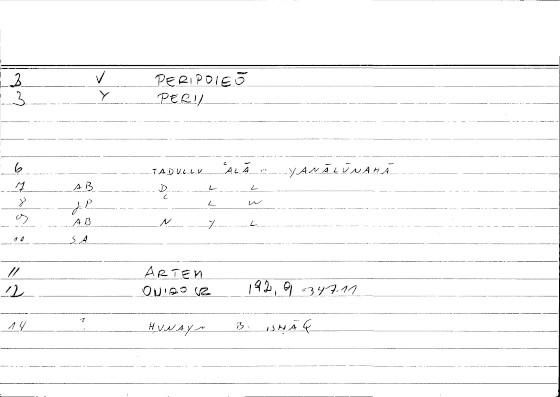 3 V PERIPOIEŌ
3 Y PERI
6 TADULLU ʿALĀ - YANĀLŪNAHĀ
7 AB D L L
8 JP L W
9 AB N Y L
10 SA
11 ARTEM
12 ONIROCR 192,9 = 347.11
14 ? HUNAYN B. ISḤĀQ